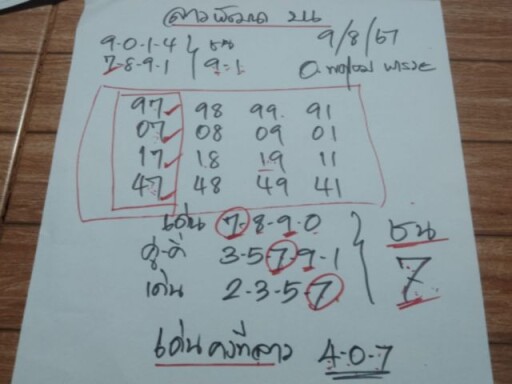 ลาวพัฒนา บน
9/8/67
9-0-1-4
7-8-9-1
ชน
9=1
97 98 99 91
07 08 09 01
17 18 19 11
47 48 49 41
เด่น 7-8-9-0
คู่-คี่ 3-5-7-9-1
เด่น 2-3-5-7
ชน
7
เด่นคงที่ลาว 4-0-7